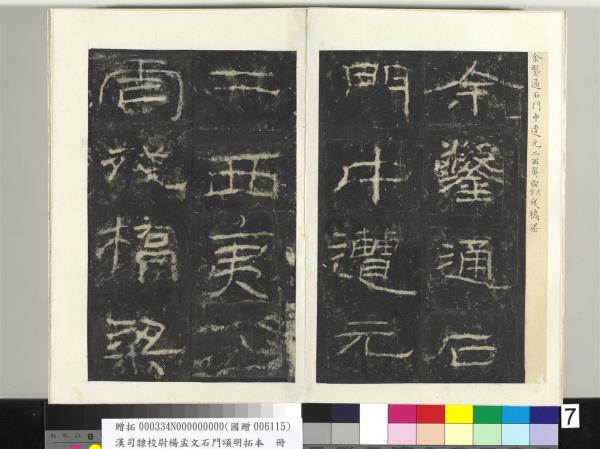 余鑿通石門中遭元二西夷虐橋梁
余鑿通石
門中遭元
二西夷虐
殘橋梁
贈拓 000334N000000000(國贈 006115)
漢司隸校尉楊孟文石門頌明拓本 冊
8
7